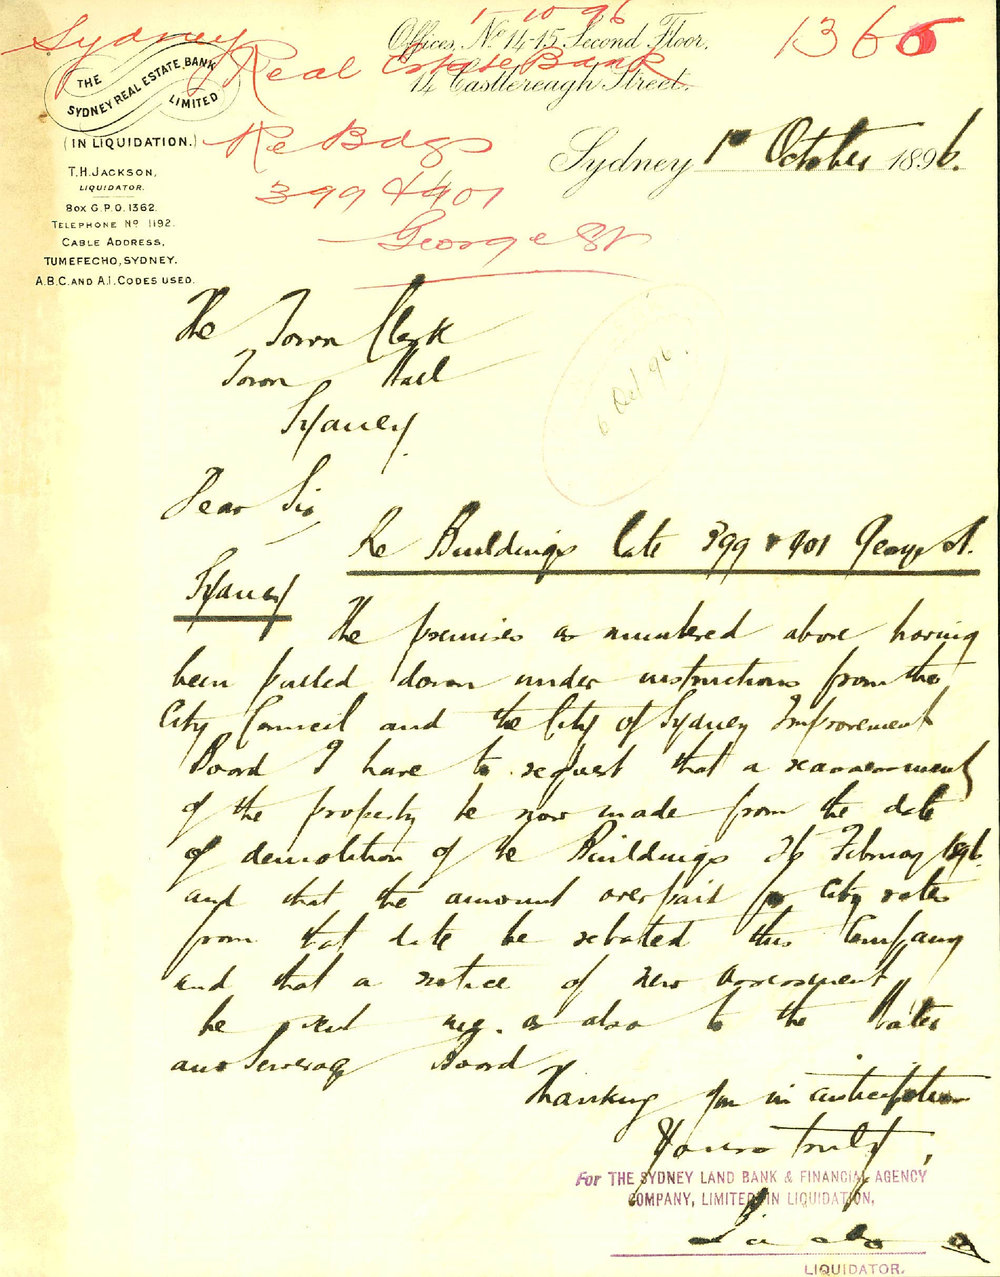 1-10-96
1366
Sydney
Real Estate Bank
Re Bdgs
399 & 401
George St
Offices, No 14-15, Second Floor,
14 Castlereagh Street.
THE
SYDNEY REAL ESTATE BANK
LIMITED
(IN LIQUIDATION.)
T.H. JACKSON,
LIQUIDATOR.
Box G.P.O. 1362.
TELEPHONE No 1192.
CABLE ADDRESS,
TUMEFECHO, SYDNEY.
A.B.C. AND A.I. CODES USED.
Sydney 1st October 1896.
The Town Clerk
Town Hall
Sydney
6 Oct 96.
Dear Sir,
Re Buildings late 399 & 401 George St.
Sydney
The premises as numbered above having
been pulled down under instructions from the
City Council and the City of Sydney Improvement
Board I have to request that a reassessment
of the property be now made from the date
of demolition of the Buildings 26 February 1896.
and that the amount overpaid for City rates
from that date be rebated this Company
and that a notice of new assessment
be sent me. as also to the Water
and Sewerage Board
Thanking you in anticipation
Yours truly,
For THE SYDNEY LAND BANK & FINANCIAL AGENCY
COMPANY, LIMITED, IN LIQUIDATION,
LIQUIDATOR.